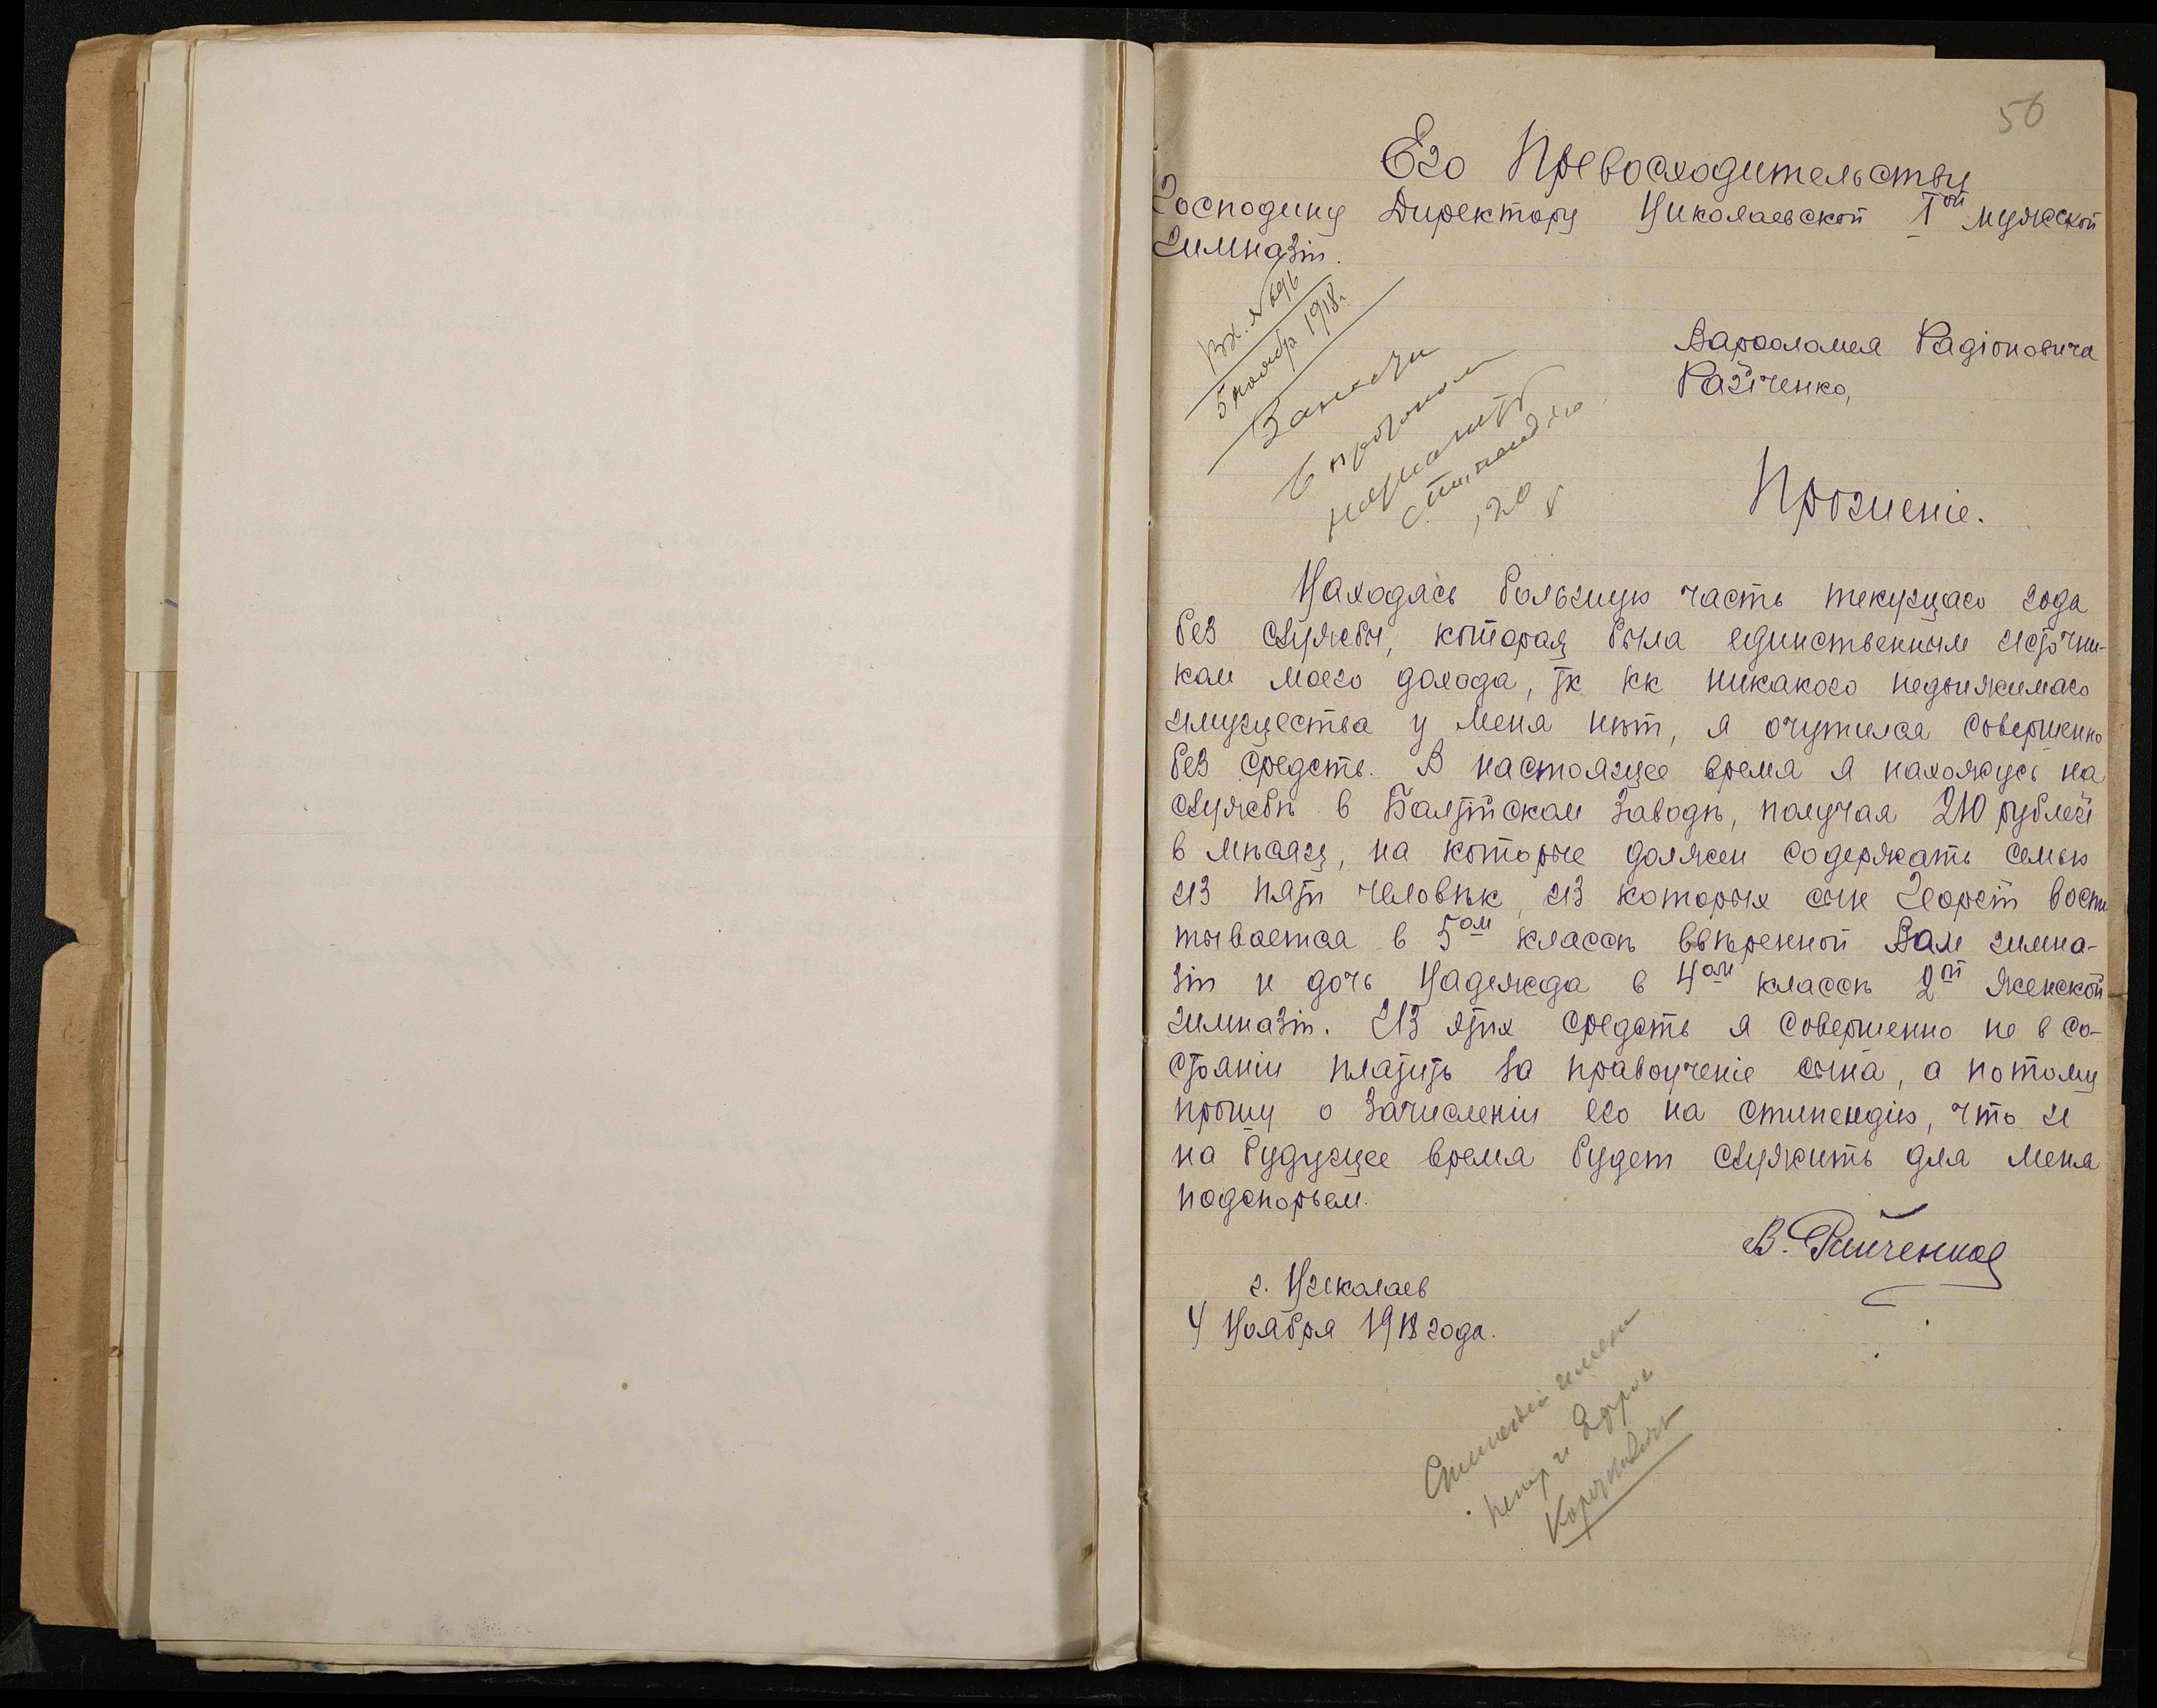 50
Его Превосходительству
Господину Директору Николаевской I ой мужской
гимназіи.
Вх. № 696
5 ноября 1918 г.
Варфоломея Радіоновича
Райченко,
Занести
в протокол
назначить
стипендію
Прошеніе.
Находясь большую часть текущаго года
без службы, которая была единственным источни-
ком моего дохода, тк кк никакого недвижимаго
имущества у меня нѣт, я очутился совершенно
без средств. В настоящее время я нахожусь на
службѣ в Балтійском заводѣ, получая 210 рублей
в мѣсяц, на которые должен содержать семью
из пяти человѣк, из которых сын Георгій воспи
тывается в 5 ом классѣ ввѣренной Вам гимна-
зіи и дочь Надежда в 4 ом классѣ 2 ой женской
гимназіи. Из этих средств я совершенно не в со-
стояніи платить за правоученіе сына, а потому
прошу о зачисленіи его на стипендію, что и
на будущее время будет служить для меня
подспорьем.
В. Райченко
г. Николаев
4 Ноября 1918 года.
Стипендія имени